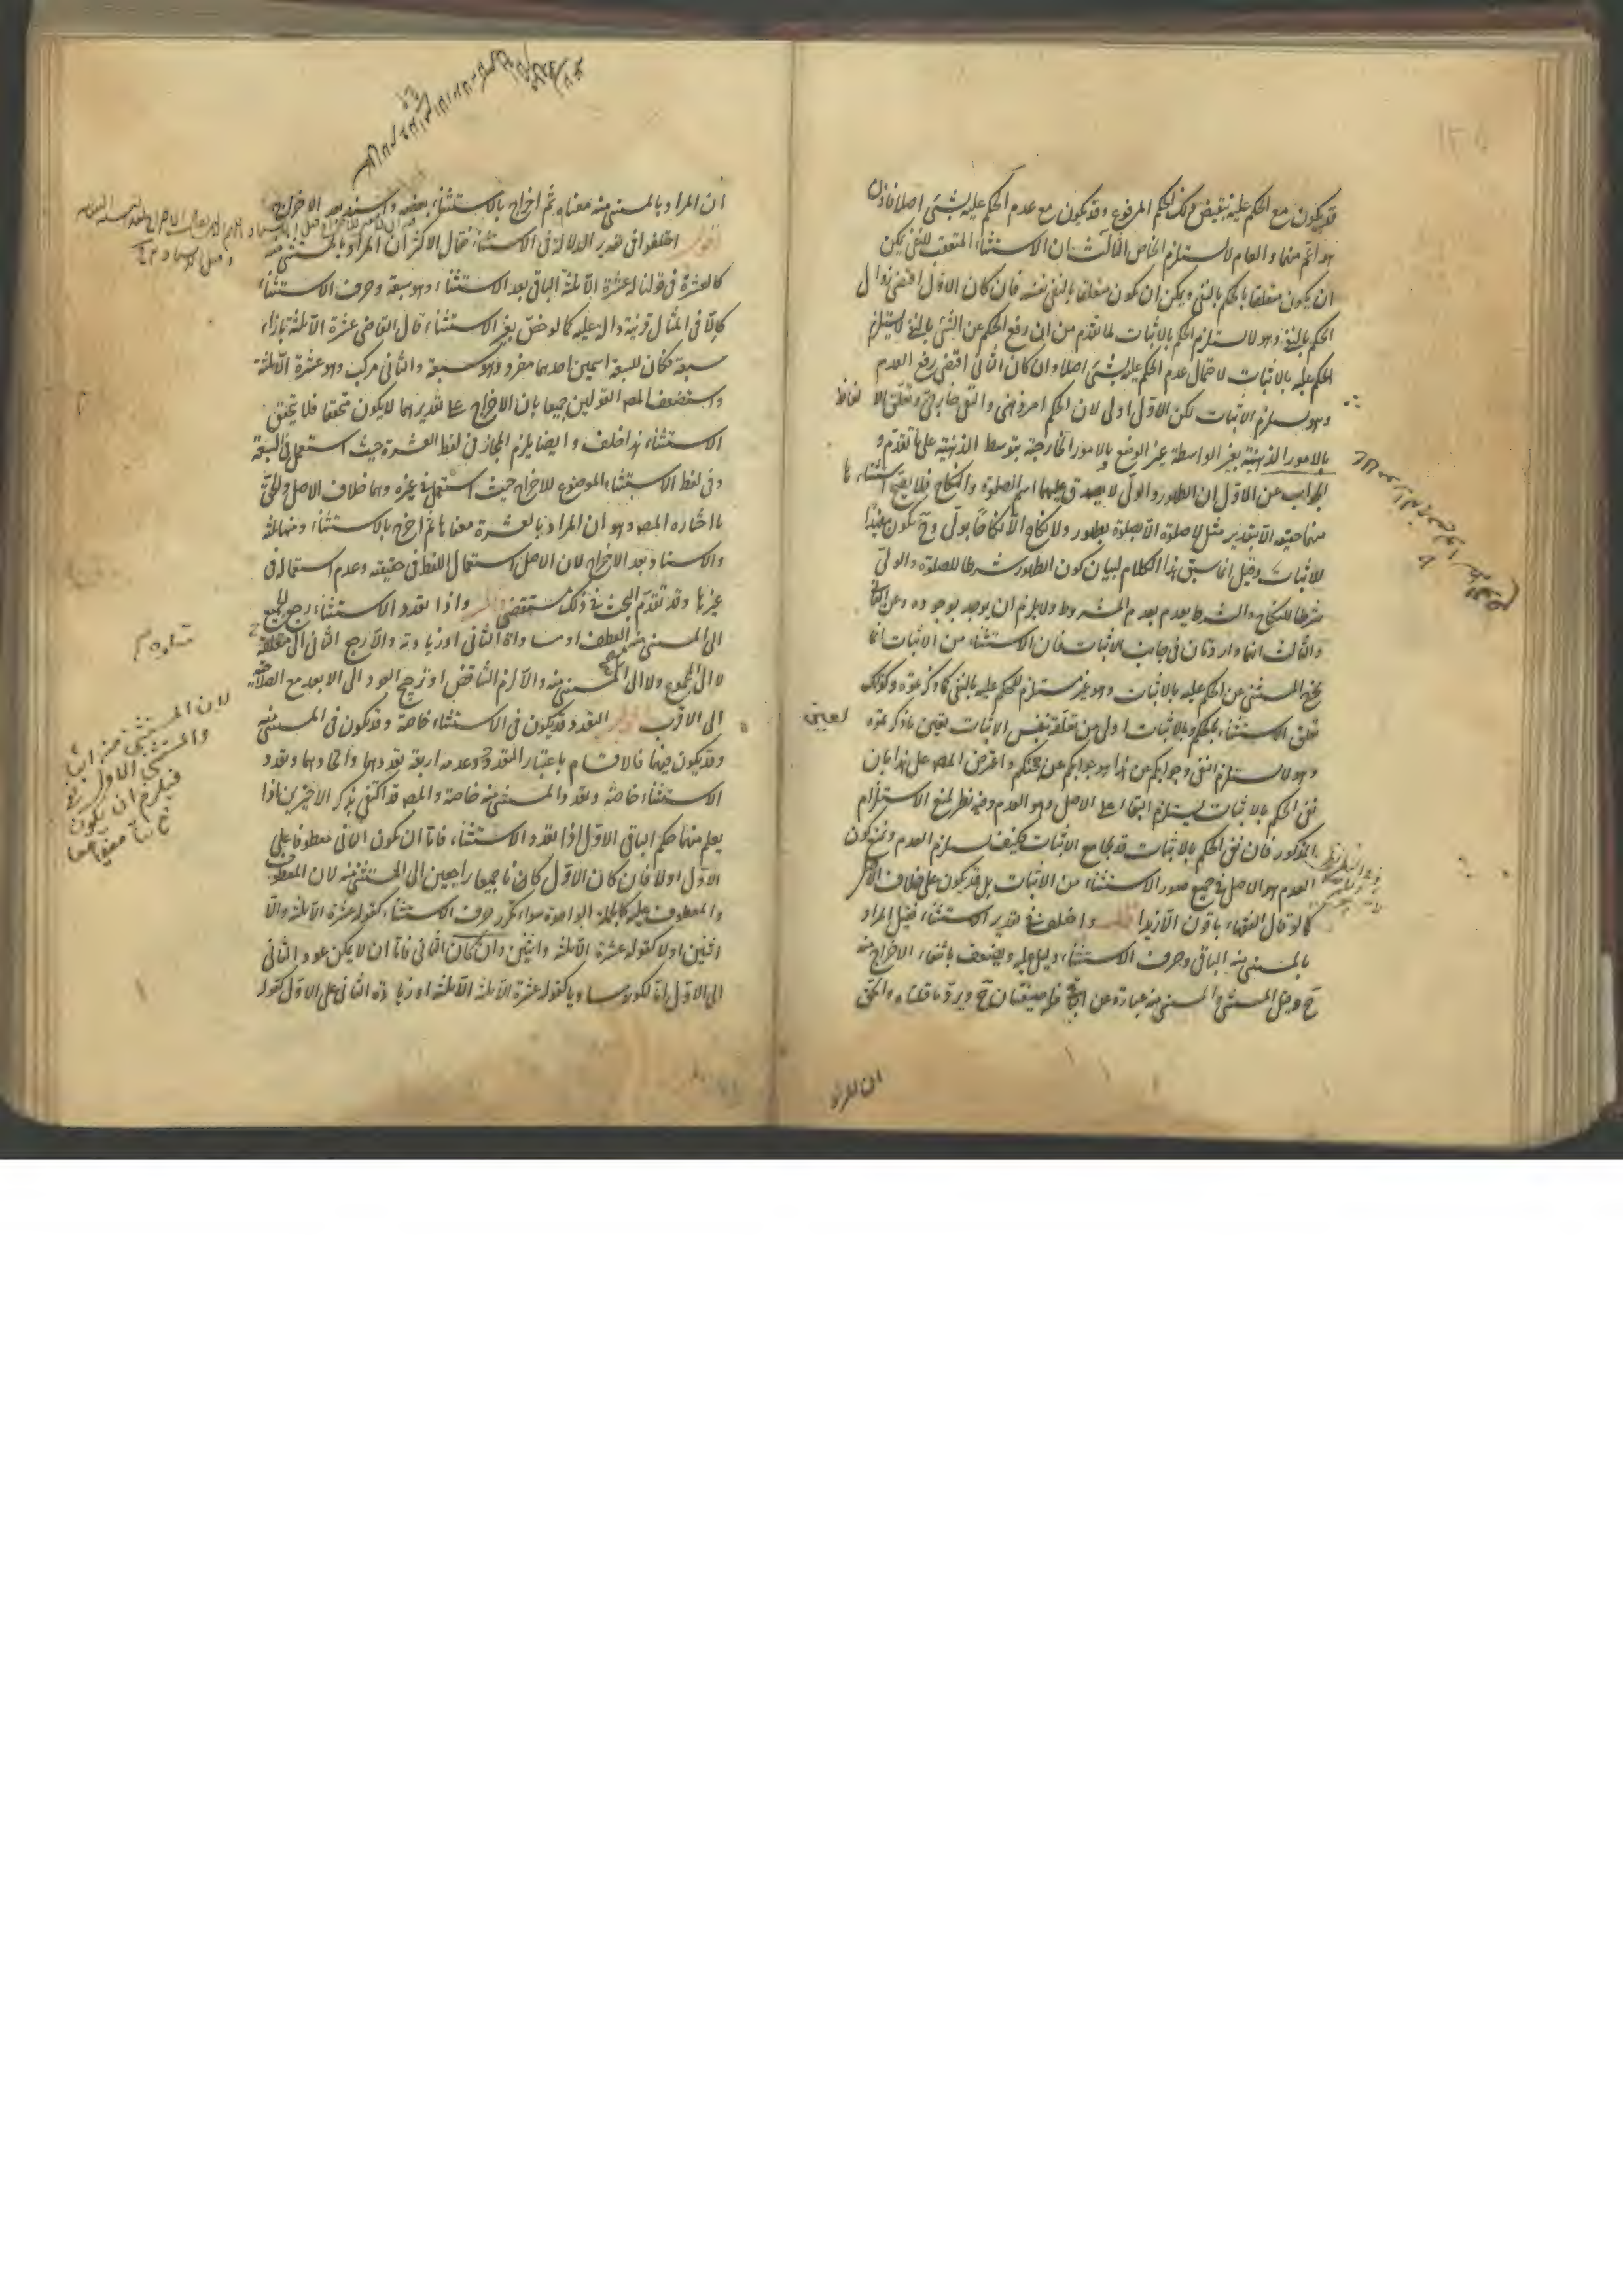 قد يكون مع الحكم عليه بنقيض ذلك الحكم المرفوع وقد يكون مع عدم الحكم عليه بشئ اصلا فاذن
هو اعم منهما والعام لا يستلزم الخاص الثالث ان الاستثناء المتعقب للنفى يمكن
ان يكون متعلقا بالحكم بالنفى ويمكن ان يكون متعلقا بالنفى نفسه فان كان الاول اقتضى زوال
الحكم بالنفى وهو لا يستلزم الحكم بالاثبات لما تقدم من ان رفع الحكم عن الشئ بالنفى لا يستلزم
الحكم عليه بالاثبات لاحتمال عدم الحكم عليه بشئ اصلا وان كان الثانى اقتضى رفع العدم
وهو يستلزم الاثبات لكن الاول اولى لان الحكم امر ذهنى والنفى خارجى وتعلق الالفاظ
بالامور الذهنية بغير الواسطة غير الوضع وبالامور الخارجية بتوسط الذهنية على ما تقدم و
الجواب عن الاول ان الطهور والولى لا يصدق عليهما اسم الصلوة والنكاح فلا يصح استثناءهما
منهما حقيقة الا بتقدير مثل لا صلوة الا صلوة بطهور ولا نكاح الا نكاحا بولى وح يكون مفيدا
للاثبات وقيل انما سيق هذا الكلام لبيان كون الطهور شرطا للصلوة والولى
شرطا للنكاح والشرط يعدم بعدم المشروط ولا يلزم ان يوجد بوجوده وعن الثانى
والثالث انهما واردتان فى جانب الاثبات فان الاستثناء من الاثبات انما
يخرج المستثنى عن الحكم عليه بالاثبات وهو غير مستلزم للحكم عليه بالنفى كما ذكرتموه وكذلك
تعلق الاستثناء بالحكم وبالاثبات اولى من تعلقه بنفس الاثبات بعين ما ذكرتموه
وهو لا يستلزم النفى وجوابكم عن هذا هو جوابكم عن حجتكم واعترض المصـ على هذا بان
نفى الحكم بالاثبات يستلزم البقاء على الاصل وهو العدم وفيه نظر لمنع الاستلزام
المذكور فان نفى الحكم بالاثبات قد يجامع الاثبات فكيف يستلزم العدم ونمنع كون
العدم هو الاصل فى جميع صور الاستثناء من الاثبات بل قد يكون على خلاف الاصل
كما لو قال الفقهاء باقون الا زيدا واختلف فى تقدير الاستثناء فقيل المراد
بالمستثنى منه الباقى وحرف الاستثناء دليل عليه ويضعف بانتفاء الاخراج منه
ح وقيل المستثنى والمستثنى منه عبارة عن الباقى فله صيغتان ح ويرده ما قلناه والحق
ان المراد
ان المراد بالمستثنى منه معناه ثم اخراج بالاستثناء بعضه واسند بعد الاخراج
اقول اختلفوا فى تقدير الدلالة فى الاستثناء فقال الاكثر ان المراد بالمستثنى منه
كالعشرة فى قولنا له عشرة الا ثلثة الباقى بعد الاستثناء وهو سبعة وحرف الاستثناء
كالا فى المثال قرينة دالة عليه كما لو خص بغير الاستثناء قال القاضى عشرة الا ثلثة بازاء
سبعة فكان للسبعة اسمين احدهما مفرد وهو سبعة والثانى مركب وهو عشرة الا ثلثة
واستضعف المصـ القولين جميعا بان الاخراج على تقديرهما لا يكون متحققا فلا يتحقق
الاستثناء هذا خلف وايضا يلزم المجاز فى لفظ العشرة حيث استعمل فى السبعة
وفى لفظ الاستثناء الموضوع للاخراج حيث استعمل فى غيره وهما خلاف الاصل والحق
ما اختاره المصـ وهو ان المراد بالعشرة معناها ثم اخرج بالاستثناء منها ثلثة
والاسناد بعد الاخراج لان الاصل استعمال اللفظ فى حقيقته وعدم استعماله فى
غيرها وقد تقدم البحث فى ذلك مستقصى واذا تعدد الاستثناء رجع الجميع
الى المستثنى منه مع العطف او مساواة الثانى او زيادته والا رجع الثانى الى متعلقه
لا الى المجموع ولا الى المستثنى منه والا لزم التناقض او ترجيح العود الى الابعد مع الصلاحية
الى الاقرب التعدد قد يكون فى الاستثناء خاصة وقد يكون فى المستثنى منه
وقد يكون فيهما فالاقسام باعتبار التعدد وعدمه اربعة تعددهما واتحادهما وتعدد
الاستثناء خاصة وتعدد المستثنى منه خاصة والمصـ قد اكتفى بذكر الاخيرين اذا
يعلم منهما حكم الباقى الاول اذا تعدد الاستثناء فاما ان يكون الثانى معطوفا على
الاول او لا فان كان الاول كانا جميعا راجعين الى المستثنى منه لان المعطوف
والمعطوف عليه كالجملة الواحدة سواء تكرر حرف الاستثناء كقوله عشرة الا ثلثة والا
اثنين او لا كقوله عشرة الا ثلثة واثنين وان كان الثانى فاما ان لا يمكن عود الثانى
الى الاول اما لكونه مساويا كقوله عشرة الا ثلثة الا ثلثة او زيادة الثانى على الاول كقوله
لان المستثنى منه اثبات
والمستثنى الاول نفى
فيلزم ان يكون